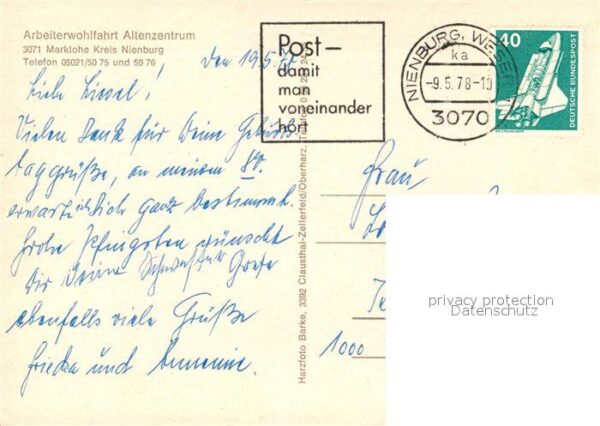 Arbeiterwohlfahrt Altenzentrum
3071 Marklohe Kreis Nienburg
Telefon 05021/50 75 und 50 76
den 19.5.
Post –
damit
man
voneinander
hört
NIENBURG, WESER
ka
-9.5.78-10
3070
40
DEUTSCHE BUNDESPOST
Liebe Liesel!
Vielen Dank für Deine Geburts-
taggrüße, an meinem 80.
erwarte ich Dich ganz bestimmt.
Frohe Pfingsten wünscht
Dir Deine Schwester Grete
ebenfalls viele Grüße
Frieda und
Harzfoto Barke, 3392 Clausthal-Zellerfeld/Oberharz,
Frau
1000
privacy protection
Datenschutz